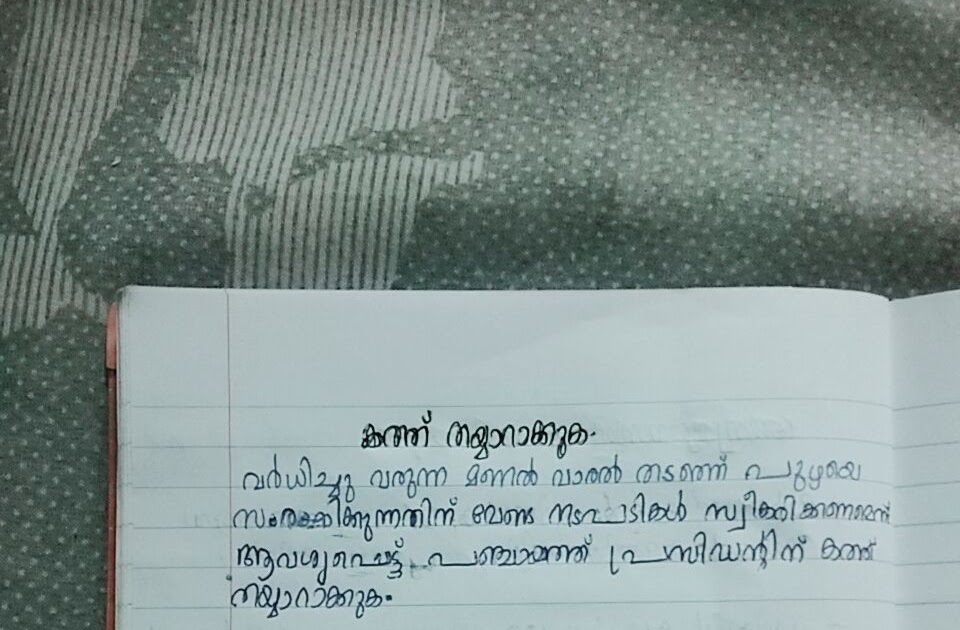 കത്ത് തയ്യാറാക്കുക.
വർധിച്ചു വരുന്ന മണൽ വാരൽ തടഞ്ഞ് പുഴയെ
സംരക്ഷിക്കുന്നതിന് വേണ്ട നടപടികൾ സ്വീകരിക്കണമെന്ന്
ആവശ്യപ്പെട്ട് പഞ്ചായത്ത് പ്രസിഡന്റിന് കത്ത്
തയ്യാറാക്കുക.